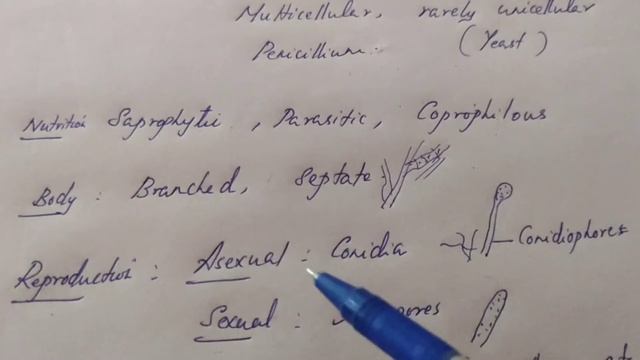 Multicellular, rarely unicellular
Penicillium. (Yeast)
Nutrition Saprophytic, Parasitic, Coprophilous
Body : Branched, Septate
Reproduction : Asexual : Conidia Conidiophores
Sexual :